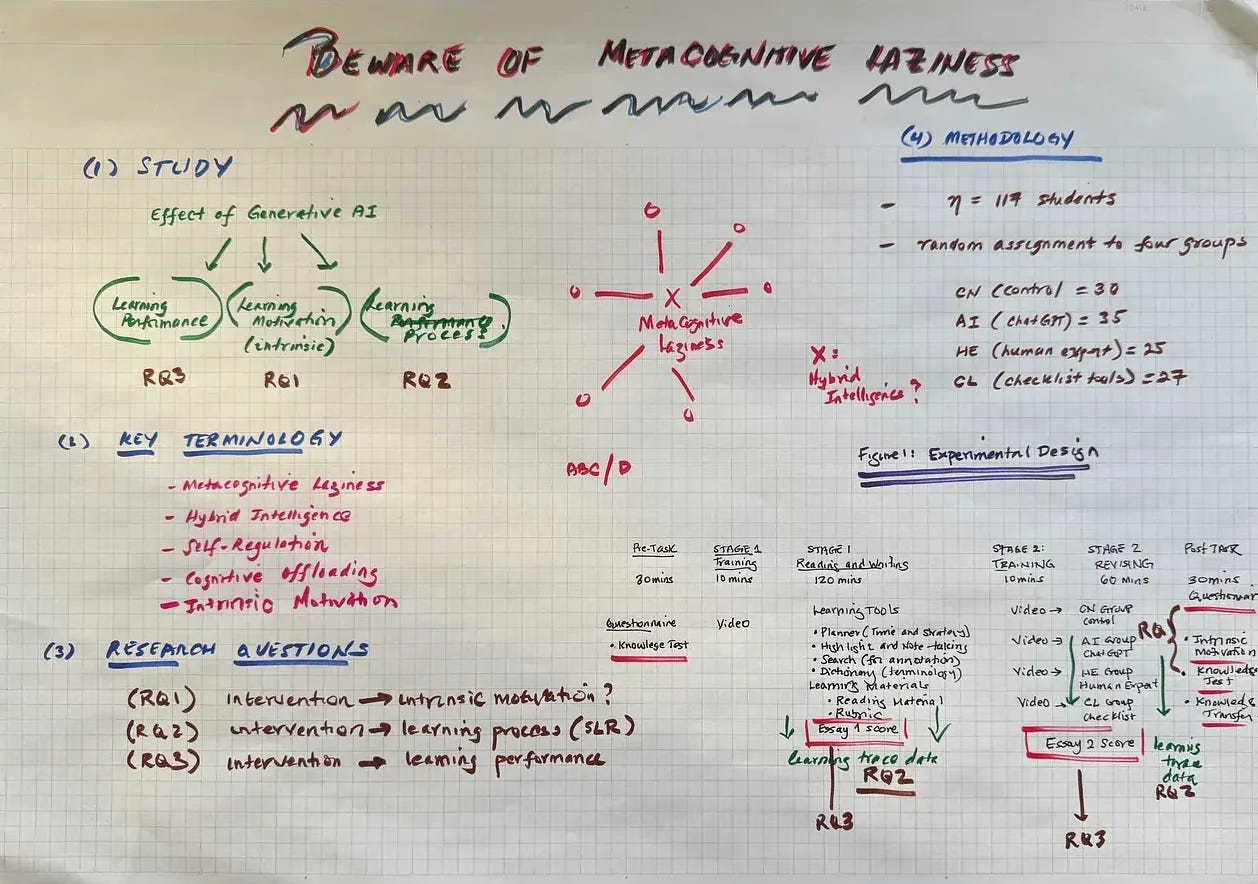 BEWARE OF METACOGNITIVE LAZINESS
(1) STUDY
Effect of Generative AI
(Learning Performance)
(Learning Motivation)
(intrinsic)
(Learning Process)
RQ3
RQ1
RQ2
(2) KEY TERMINOLOGY
- Metacognitive Laziness
- Hybrid Intelligence
- Self-Regulation
- Cognitive offloading
- Intrinsic Motivation
(3) RESEARCH QUESTIONS
(RQ1) intervention → intrinsic motivation?
(RQ2) intervention → learning process (SLR)
(RQ3) intervention → learning performance
O
O
O
X
O
MetaCognitive
Laziness
O
O
X:
Hybrid
Intelligence?
ABC/D
(4) METHODOLOGY
- η = 117 students
- random assignment to four groups
CN (control = 30
AI (chatGPT) = 35
HE (human expert) = 25
CL (checklist tools) = 27
Figure 1: Experimental Design
Pre-Task
30 mins
Questionnaire
• Knowlege Test
STAGE 1
Training
10 mins
Video
STAGE 1
Reading and Writing
120 mins
Learning Tools
• Planner (Time and strategy)
• Highlight and Note-taking
• Search (for annotation)
• Dictionary (terminology)
Learning Materials
• Reading Material
• Rubric
Essay 1 score
learning trace data
RQ2
RQ3
STAGE 2:
TRAINING
10 mins
STAGE 2
REVISING
60 mins
Video → CN Group
Control
Video → AI Group
ChatGPT
Video → HE Group
Human Expert
Video → CL Group
Checklist
Essay 2 Score
RQ3
learning
trace
data
RQ2
Post TASK
30 mins
Questionnair
RQ1
• Intrinsic
Motivation
• Knowledge
Test
• Knowledge
Transfer